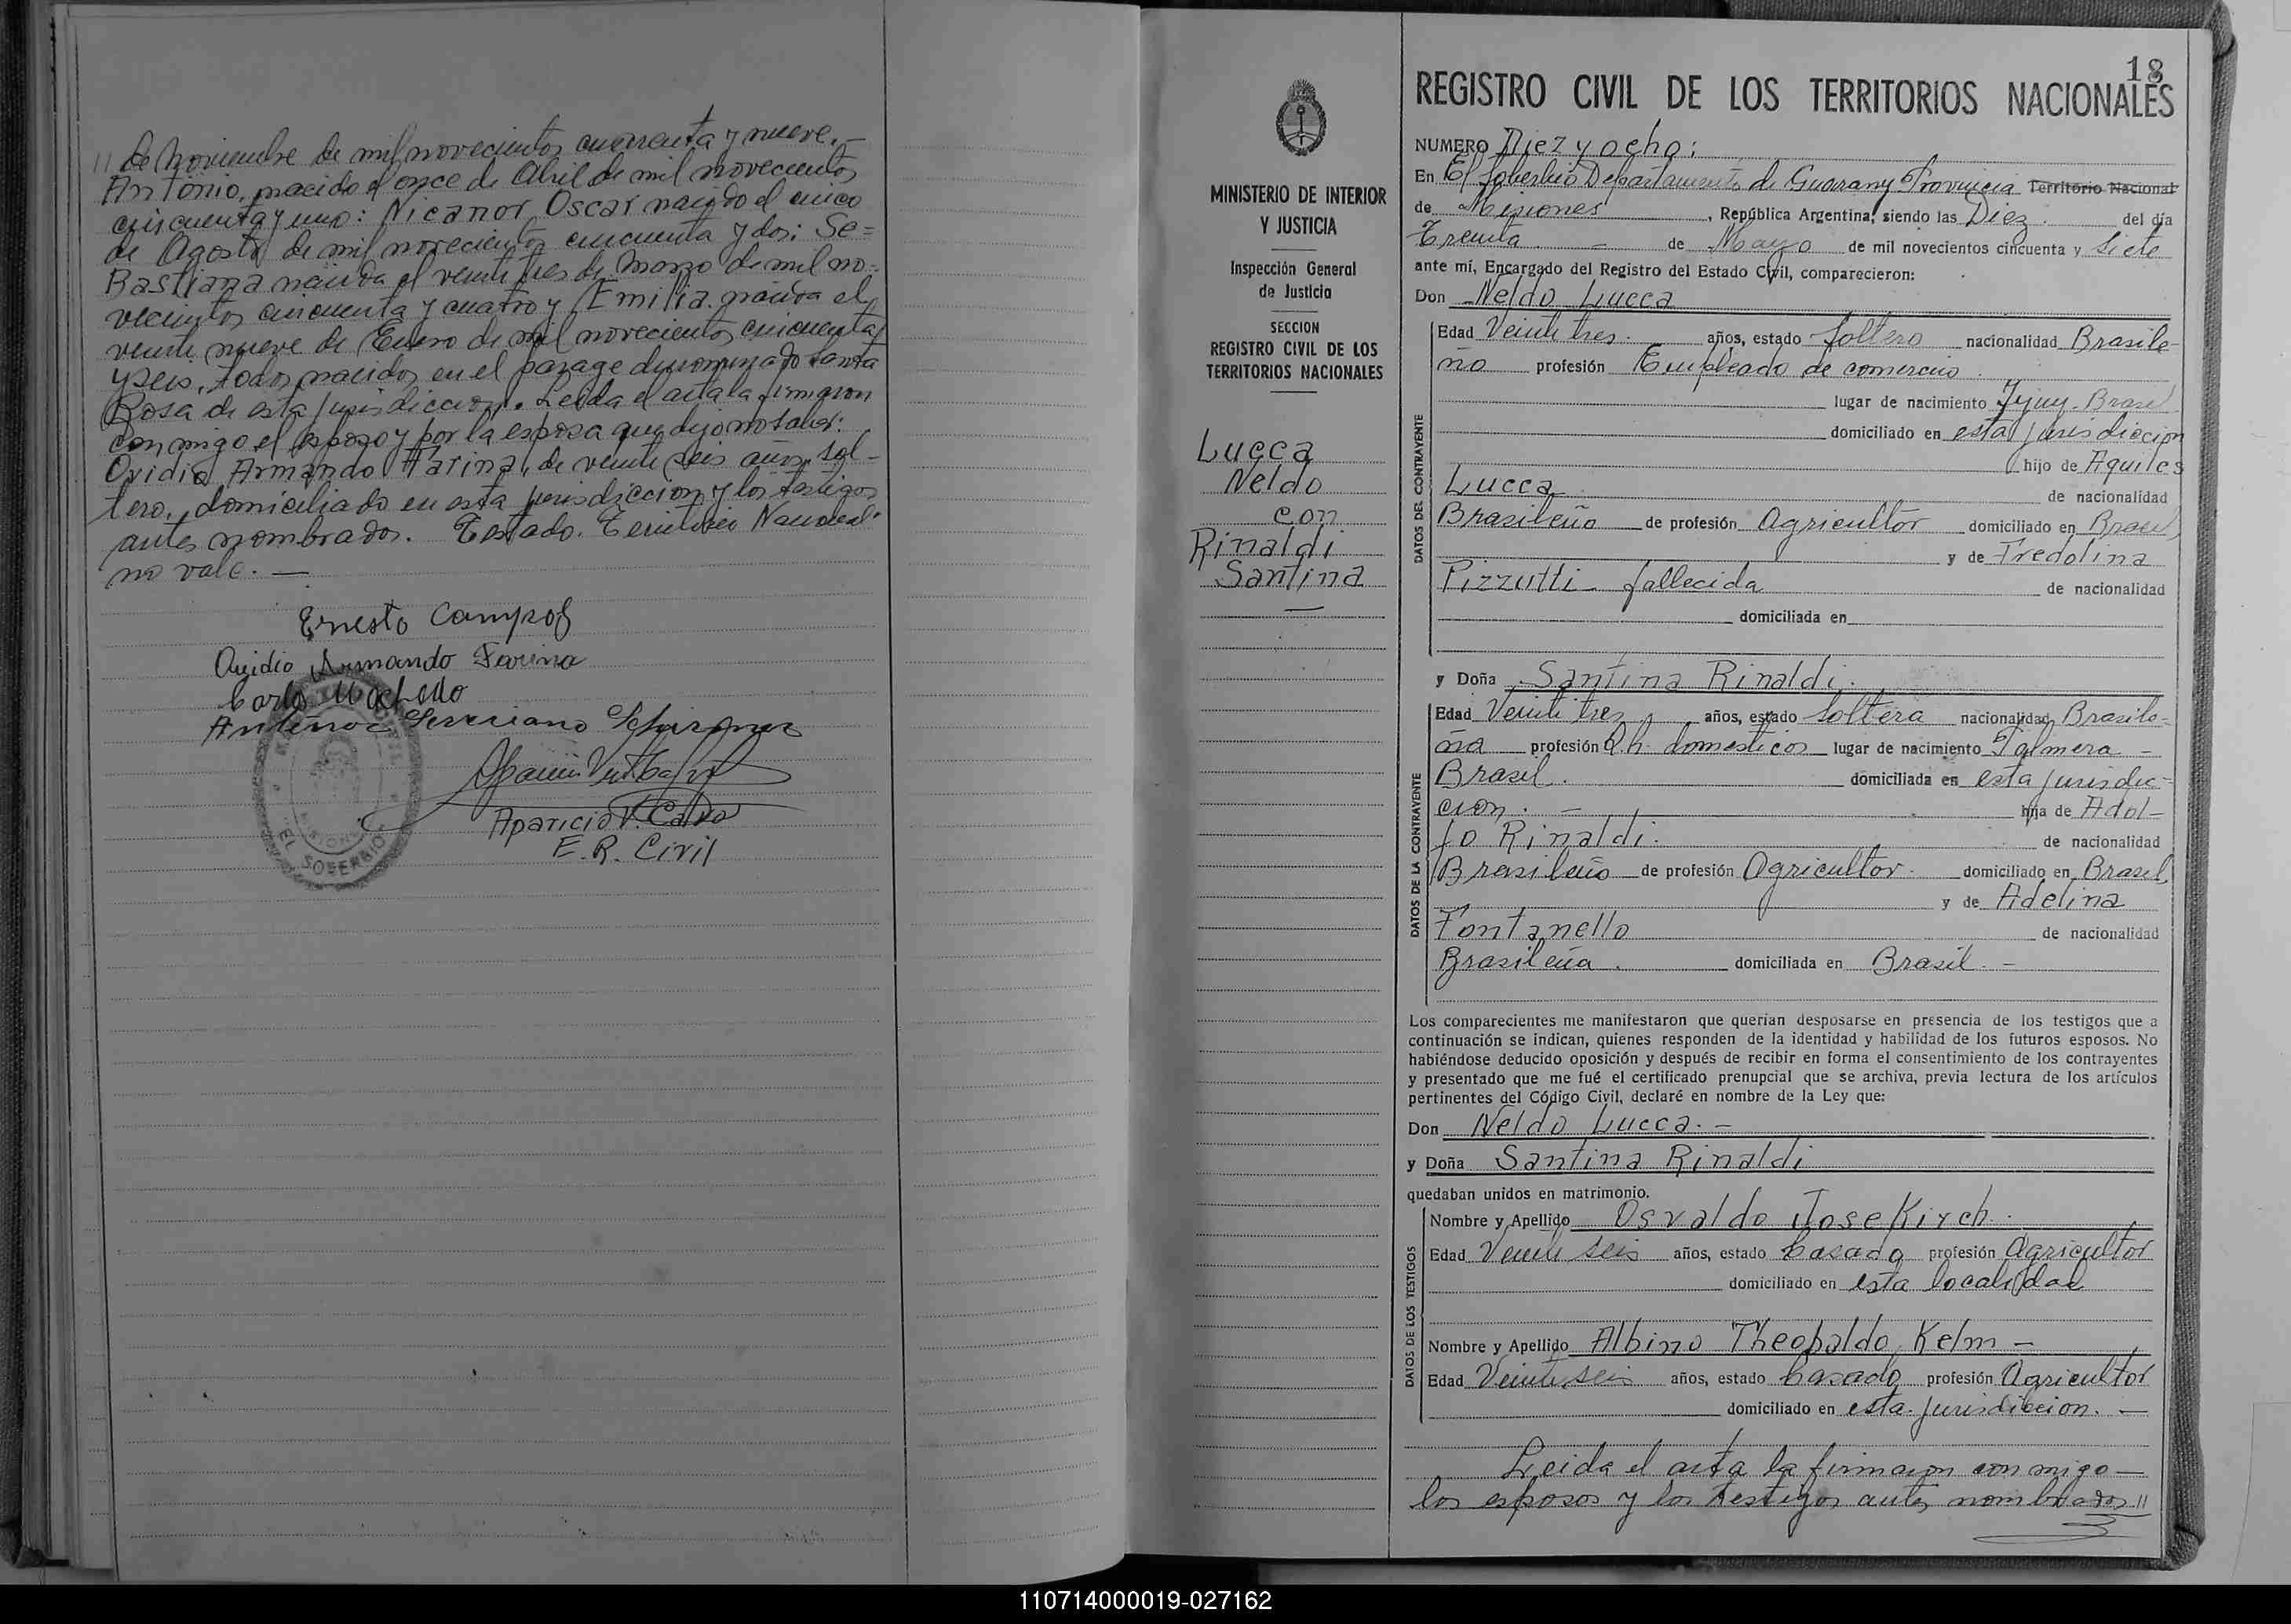 // de Noviembre de mil novecientos cuarenta y nueve.-
Antonio, nacido el once de Abril de mil novecientos
cincuenta y uno: Nicanor Oscar nacido el cinco
de Agosto de mil novecientos cincuenta y dos: Se=
Bastiana nacida el veinte tres de Marzo de mil no=
vecientos cincuenta y cuatro y Emilia nacida el
veinte nueve de Enero de mil novecientos cincuenta
y seis, todos nacidos en el parage denominado Santa
Rosa de esta jurisdiccion. Leida el acta la firmaron
conmigo el esposo y por la esposa que dijo no saber:
Ovidio Armando Farina, de veinte seis años, sol-
tero, domiciliado en esta jurisdiccion y los testigos
antes nombrados. Testado. Territorio Nacional.
no vale. —
Ernesto Campos
Ovidio Armando Farina
Carlos Machado
Antenor Severiano
Aparicio V. Calvo
E. R. Civil
EL SOBERBIO
MINISTERIO DE INTERIOR
Y JUSTICIA
Inspección General
de Justicia
SECCION
REGISTRO CIVIL DE LOS
TERRITORIOS NACIONALES
Lucca
Neldo
con
Rinaldi
Santina
—
18
REGISTRO CIVIL DE LOS TERRITORIOS NACIONALES
NUMERO Diez y ocho:
En El Soberbio Departamento de Guarany Provincia Territorio Nacional
de Misiones, República Argentina, siendo las Diez. del día
Treinta - de Mayo de mil novecientos cincuenta y Siete
ante mí, Encargado del Registro del Estado Civil, comparecieron:
Don Neldo Lucca
DATOS DEL CONTRAYENTE
Edad Veinte tres. años, estado Soltero nacionalidad Brasile-
ño profesión Empleado de comercio
lugar de nacimiento Yjuy. Brasil
domiciliado en esta jurisdiccion
hijo de Aquiles
Lucca de nacionalidad
Brasileño de profesión Agricultor domiciliado en Brasil,
y de Fredolina
Pizzutti - fallecida de nacionalidad
domiciliada en
y Doña Santina Rinaldi.
DATOS DE LA CONTRAYENTE
Edad Veinte tres años, estado Soltera nacionalidad Brasile=
ña profesión Q.h. domesticos lugar de nacimiento Palmera -
Brasil. domiciliada en esta jurisdic=
cion. - hija de Adol-
fo Rinaldi. de nacionalidad
Brasileño de profesión Agricultor. domiciliado en Brasil,
y de Adelina
Fontanello de nacionalidad
Brasileña. domiciliada en Brasil. -
Los comparecientes me manifestaron que querían desposarse en presencia de los testigos que a
continuación se indican, quienes responden de la identidad y habilidad de los futuros esposos. No
habiéndose deducido oposición y después de recibir en forma el consentimiento de los contrayentes
y presentado que me fué el certificado prenupcial que se archiva, previa lectura de los artículos
pertinentes del Código Civil, declaré en nombre de la Ley que:
Don Neldo Lucca. -
y Doña Santina Rinaldi
quedaban unidos en matrimonio.
DATOS DE LOS TESTIGOS
Nombre y Apellido Osvaldo Jose Kirch.
Edad Veinte seis años, estado Casado profesión Agricultor
domiciliado en esta localidad
Nombre y Apellido Albino Theobaldo Kelm -
Edad Veinte seis años, estado Casado profesión Agricultor
domiciliado en esta jurisdiccion. -
Leida el acta la firmaron conmigo -
los esposos y los testigos antes nombrados //
110714000019-027162